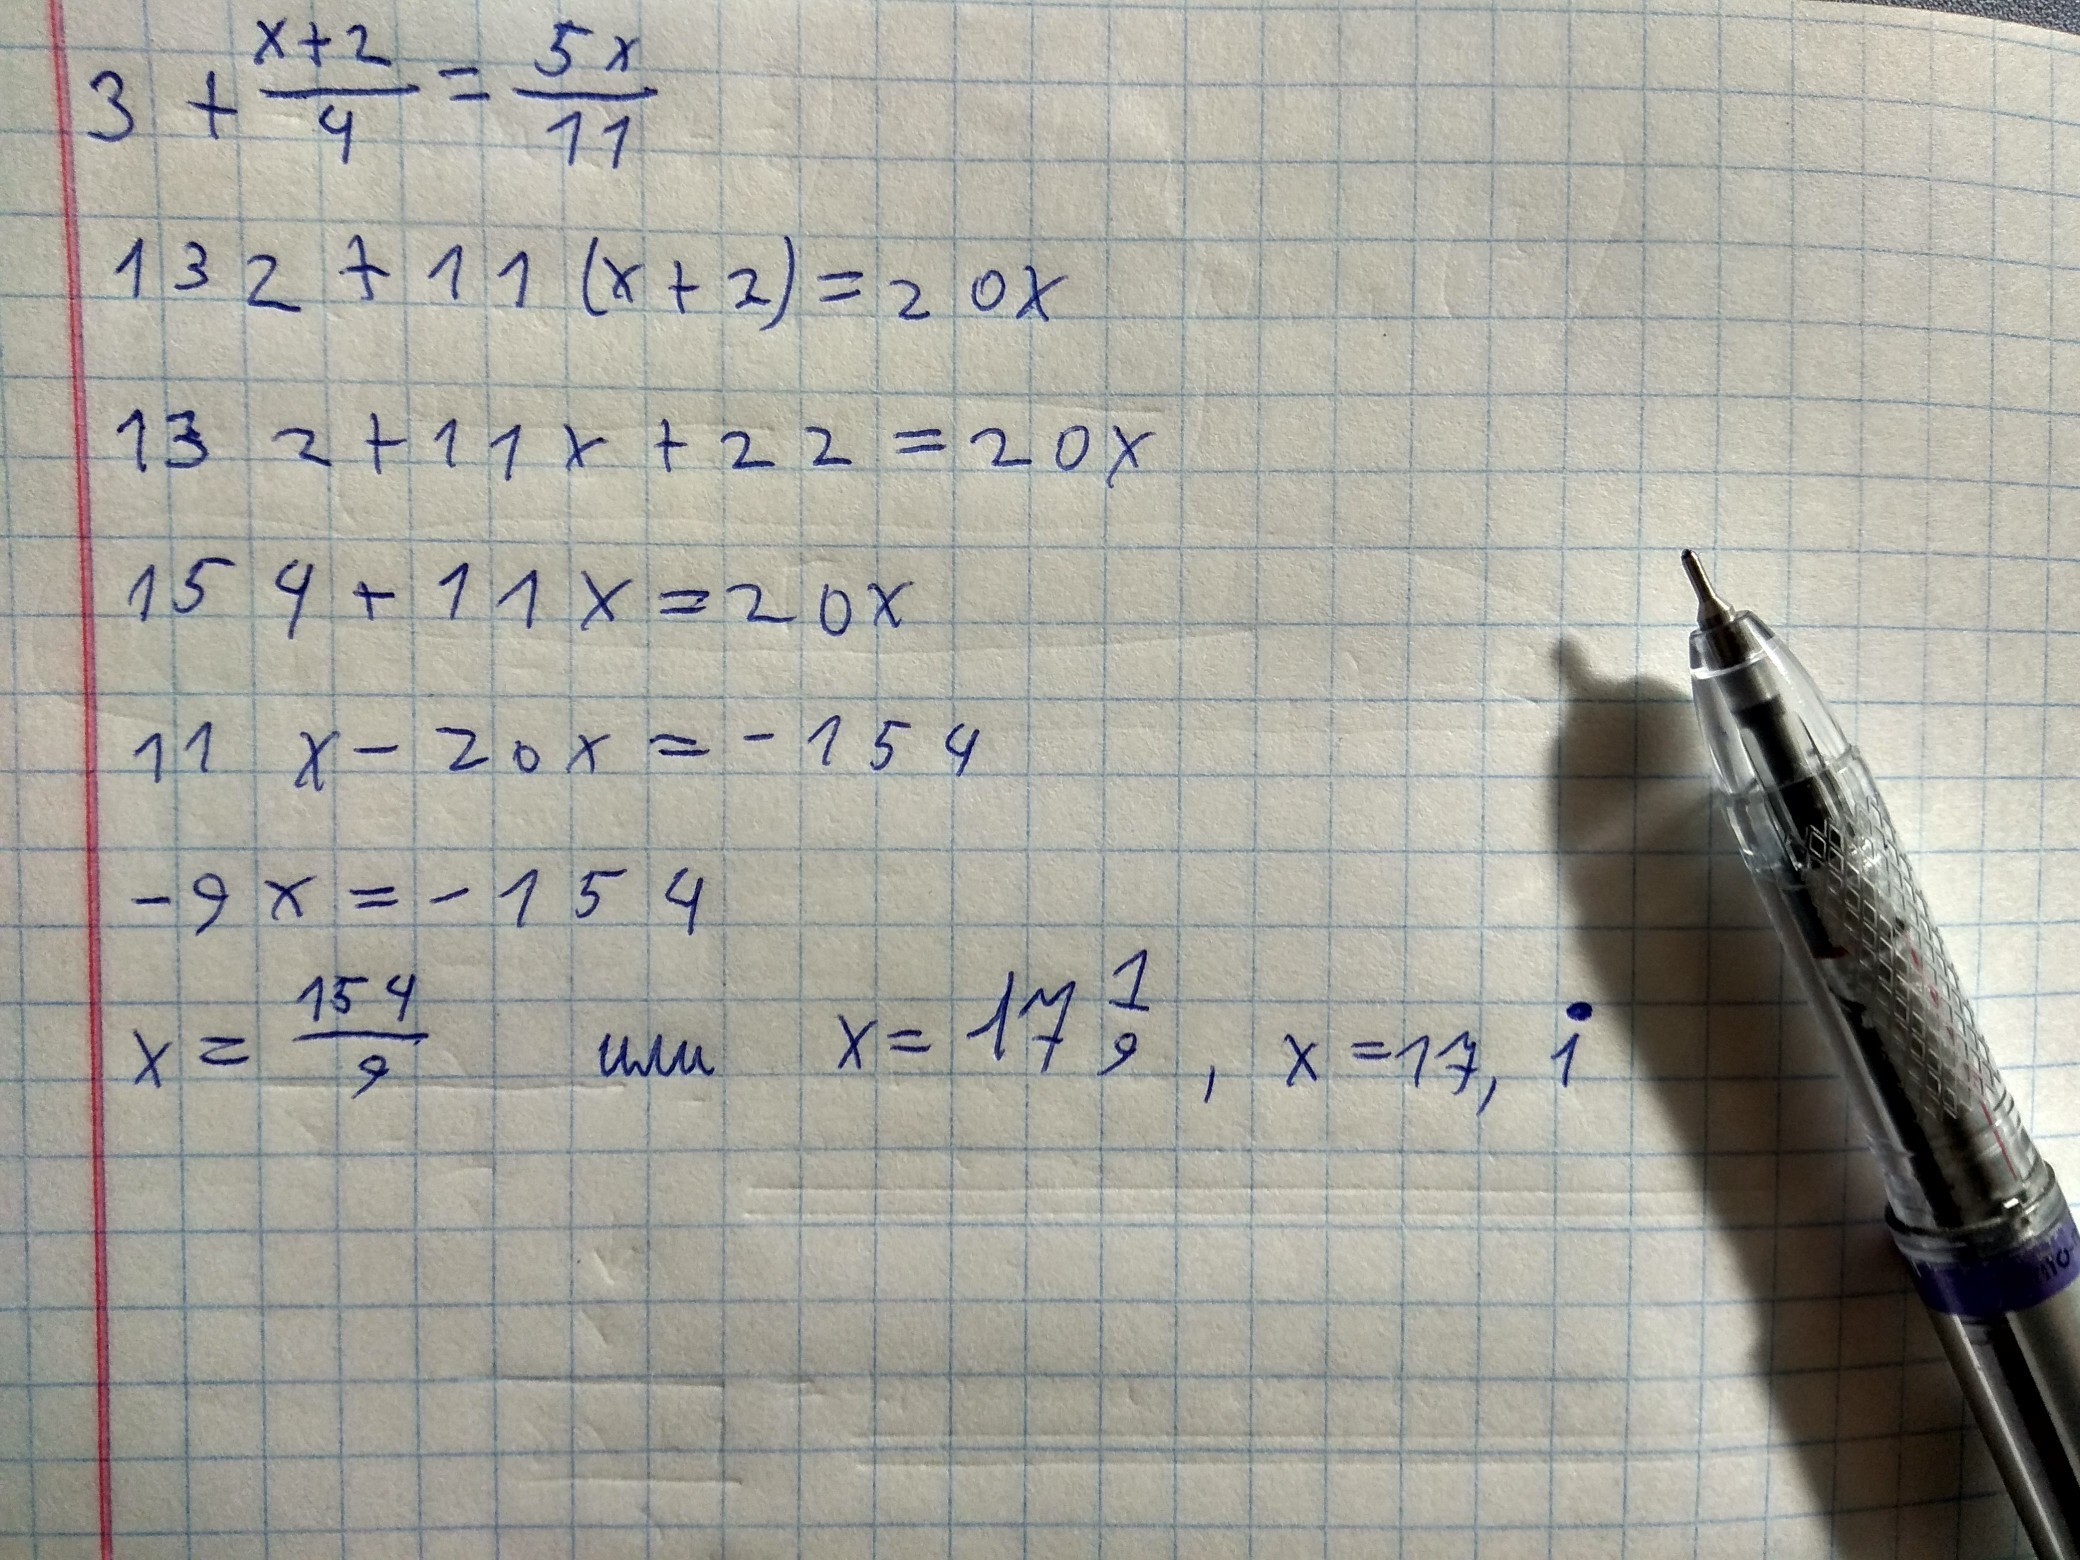 3 + (x+2)/4 = 5x/11
132 + 11(x+2) = 20x
132 + 11x + 22 = 20x
154 + 11x = 20x
11x - 20x = -154
-9x = -154
x = 154/9 или x = 17 1/9, x = 17,1̇